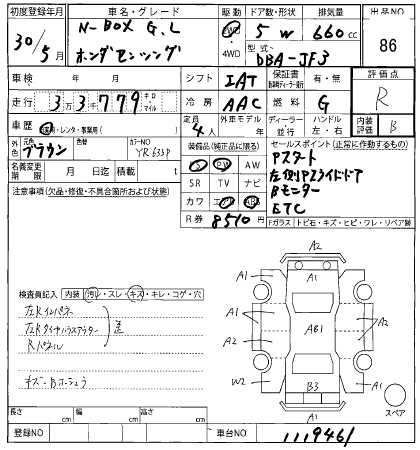 初度登録年月 車名・グレード 駆動 ドア数・形状 排気量 出品NO
30/5月 N-BOX G.L ホンダセンシング 2WD 4WD 5 W 660cc 86
型式 DBA-JF3
車検 年 月 シフト IAT 保証書 有・無 評価点
走行 33779 キロ・マイル 冷房 AAC 燃料 G R
車歴 自家・レンタ・事業用( ) 定員 4人 外車モデル 年 ディーラー 並行 ハンドル 左・右 内装評価 B
外色 ブラウン 元色 色替 カラーNO YR633P
装備品(純正品に限る) セールスポイント(正常に作動するもの)
名義変更期限 月 日迄 積載 t
S PW AW
SR TV ナビ
カワ エアB ABS
R券 8510円
Pスタート
左側Pスライドドア
Bモニター
ETC
注意事項(欠品・修復・不具合箇所および状態)
Fガラス トビ石・キズ・ヒビ・ワレ・リペア跡
検査員記入 内装 汚レ・スレ・キズ・キレ・コゲ・穴
左Rインパネ
左Rタイヤハウスアウター
Rパネル
キズ・Bホショウ
A2
A1 A1 A1
A1 A2 AB1 A2
W2 B3 A1
A1
スペア
長さ cm 幅 cm 高さ cm
登録NO 車台NO 1119461